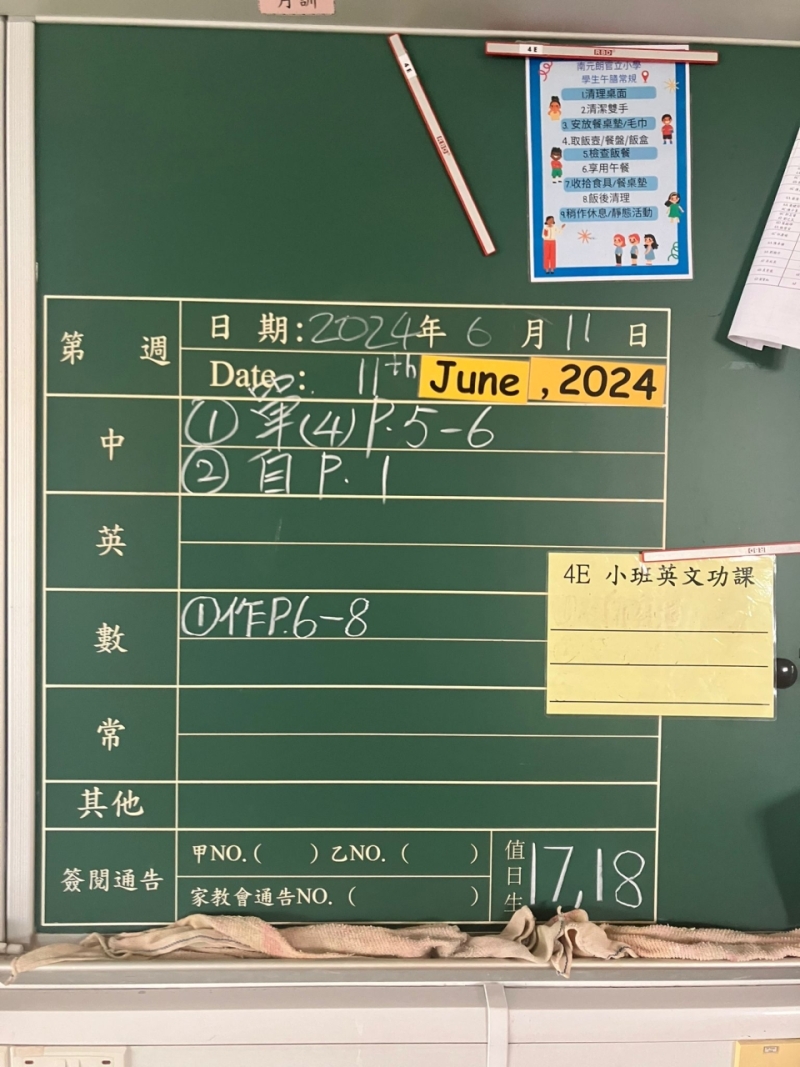 月訓
4E
RBD
4E
RBD
南元朗官立小學
學生午膳常規
1.清理桌面
2.清潔雙手
3.安放餐桌墊/毛巾
4.取飯壺/餐盤/飯盒
5.檢查飯餐
6.享用午餐
7.收拾食具/餐桌墊
8.飯後清理
9.稍作休息/靜態活動
第 週
日 期:2024年 6 月 11 日
Date : 11th June ,2024
中
① 單(4) P.5-6
② 自 P.1
英
4E 小班英文功課
數
①作P.6-8
常
其他
簽閱通告
甲NO.( ) 乙NO. ( )
家教會通告NO. ( )
值日生
17,18